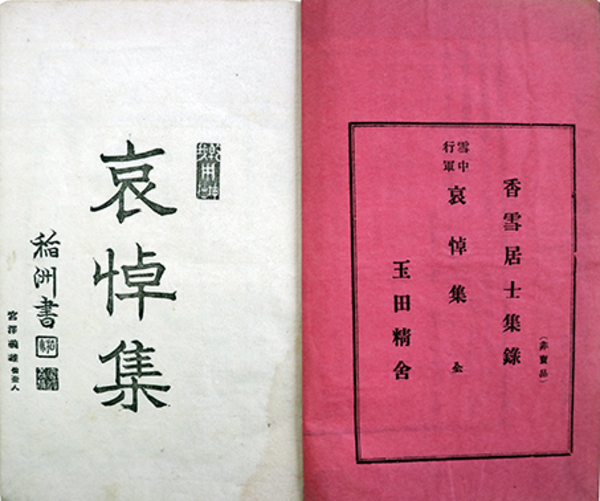 香雪居士集錄
(非賣品)
雪中
行軍
哀悼集 全
玉田精舍
哀悼集
稲洲書